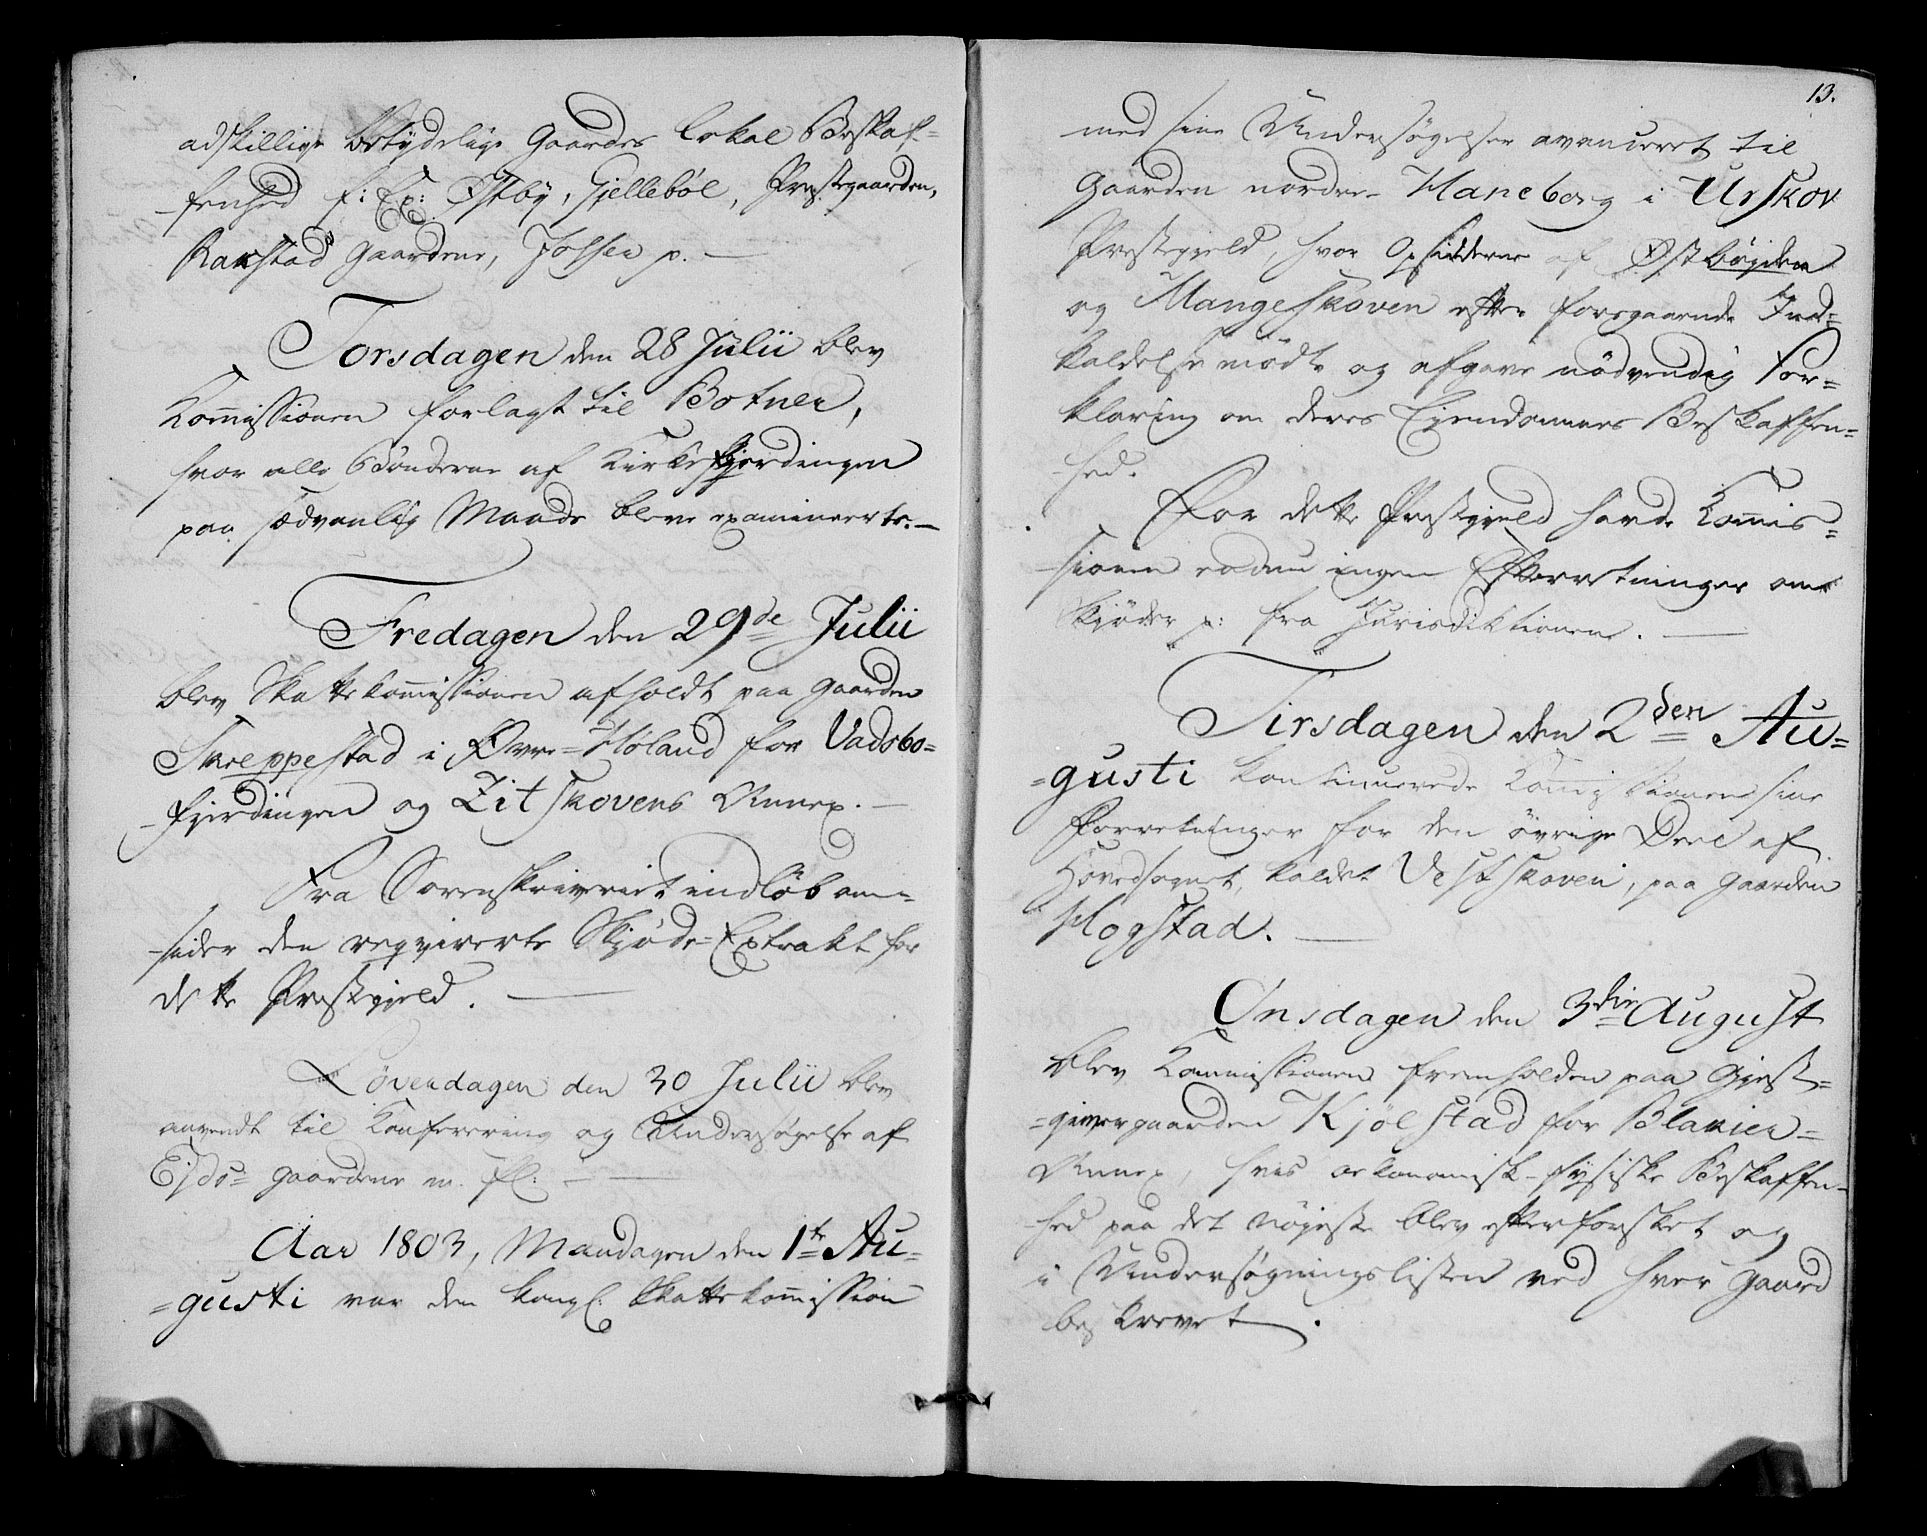 adskillige betydelige Gaardes lokal Beskaf=
fenhed f: Ex: Østby, Gjellebøl, Prestegaarden,
Rakstad Gaardene, Jossen p. —
Torsdagen den 28 Julii blev
Kom̅issionen forlagt til Botner,
hvor alle Bönderne af Kirkefjerdingen
paa sædvanlig Maade bleve examineerte. —
Fredagen den 29de Julii
blev Skattekom̅issionen afholdt paa Gaarden
Skreppestad i Øvre=Høland for Vadsbo=
fjerdingen og Zitskovens Annex. —
Fra Sorenskriveriet indløb om=
sider den reqvirerte Skjøde=Extrakt for
dette Prestegjeld. —
Løverdagen den 30 Julii blev
anvendt til Konferering og Undersøgelse af
Ejds= Gaardene m. fl: —
Aar 1803, Mandagen den 1te Au=
=gusti var den kongl: Skattekom̅ission
13.
med sine Undersøgelser avanceret til
Gaarden nordre Haneborg i Urskov
Prestegjeld, hvor Opsidderne af Østbøjden
og Mangeskoven efter foregaaende Ind=
kaldelse mödte og afgave nödvendig For=
klaring om deres Ejendommes Beskaffen=
hed.
For dette Prestegjeld havde Kom̅is=
sionen endnu ingen Efterretninger om
Skjøder p: fra Jurisdiktionen. —
Tirsdagen den 2den Au=
=gusti kontinuerede Kom̅issionen sine
Forretninger for den övrige Deel af
Hovedsognet, kaldet Vestskoven, paa Gaarden
Hogstad. —
Onsdagen den 3die August
blev Kommissionen fremholden paa Gjest=
=givergaarden Kjølstad for Blakier=
Annex, hvis oekonomisk-fysiske Beskaffen=
hed paa det nøjeste blev efterforsket og
i Undersøgningslisten ved hver Gaard
beskrevet.